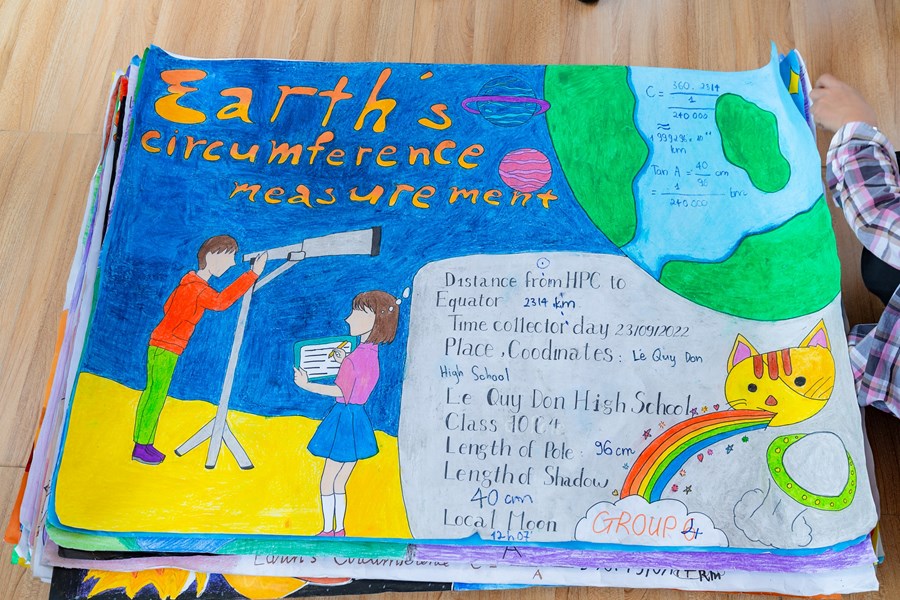 Earth's
circumference
measurement
C = 360 . 2314
1
240 000
≈
km
Tan A = 40 cm
96
= 1
240.000
Distance from HPC to
Equator 2314 km
Time collector day 23/09/2022
Place, Coodinates : Lê Quy Don
High School
Le Quy Don High School
Class 10
Length of Pole : 96 cm
Length of Shadow
40 cm
Local Moon
12h07'
GROUP
Earth's Circumference C =
A
A
KM